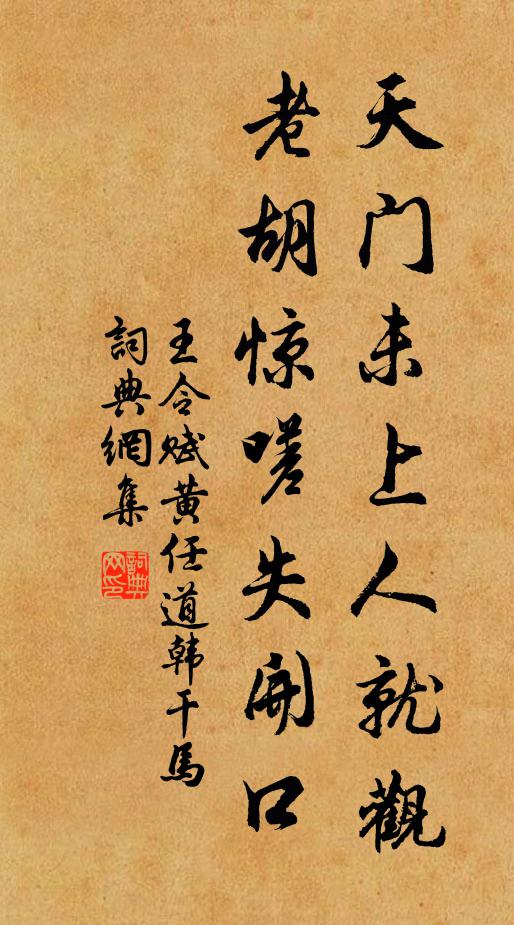 天门未上人就觀
老胡惊嗟失開口
王令赋黄任道韩干馬
詞典網集
詞典
网印